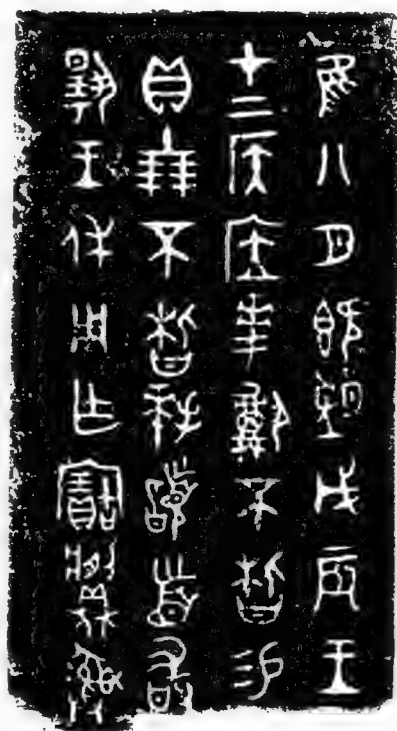 隹八月既望戊辰王
才上侯㡴𠦪祼不㫖易
貝十朋不㫖拜𩒨首敢
揚王休用乍寶𩰫彝